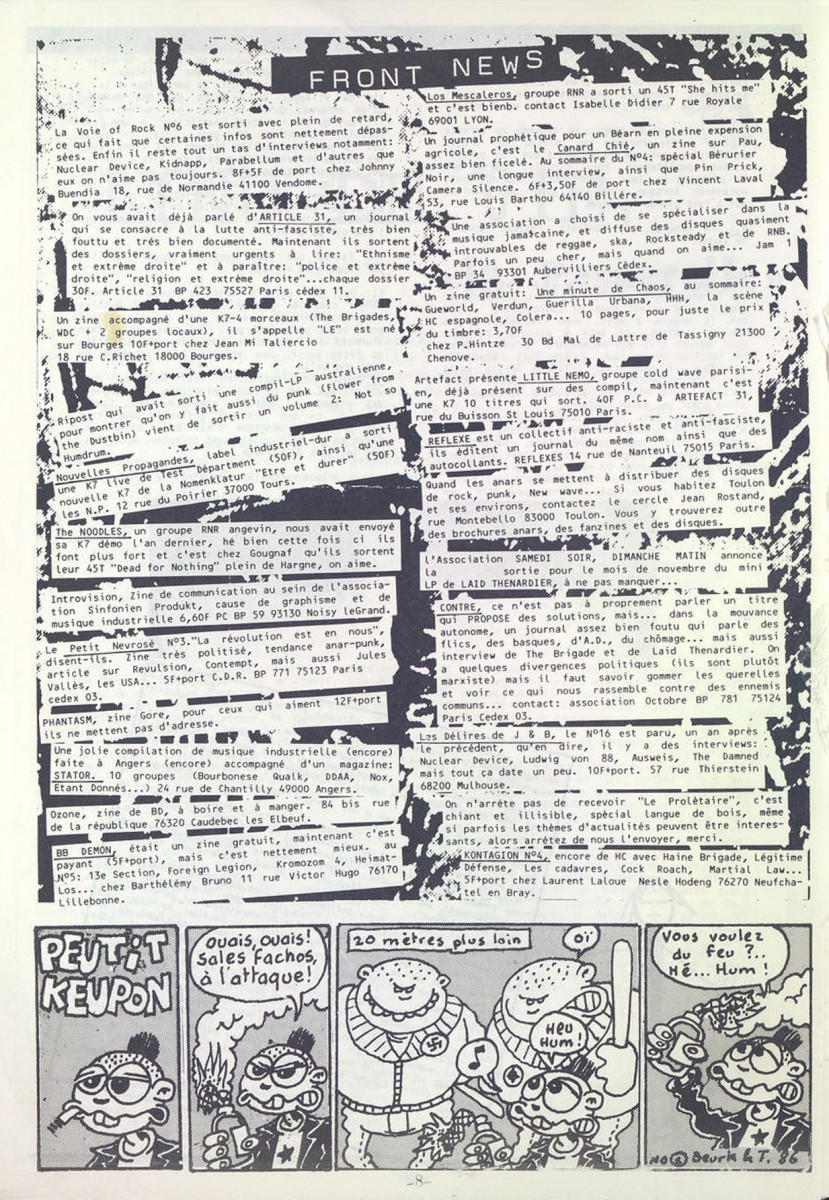 FRONT NEWS
La Voie of Rock Nº6 est sorti avec plein de retard,
ce qui fait que certaines infos sont nettement dépas-
sées. Enfin il reste tout un tas d'interviews notamment:
Nuclear Device, Kidnapp, Parabellum et d'autres que
eux on n'aime pas toujours. 8F+5F de port chez Johnny
Buendia 18, rue de Normandie 41100 Vendome.
On vous avait déjà parlé d'ARTICLE 31, un journal
qui se consacre à la lutte anti-fasciste, très bien
fouttu et trés bien documenté. Maintenant ils sortent
des dossiers, vraiment urgents à lire: "Ethnisme
et extrème droite" et à paraître: "police et extrème
droite", "religion et extrème droite"...chaque dossier
30F. Article 31 BP 423 75527 Paris cédex 11.
Un zine accompagné d'une K7-4 morceaux (The Brigades,
WDC + 2 groupes locaux), il s'appelle "LE" est né
sur Bourges 10F+port chez Jean Mi Taliercio
18 rue C.Richet 18000 Bourges.
Ripost qui avait sorti une compil-LP australienne,
pour montrer qu'on y fait aussi du punk (Flower from
the Dustbin) vient de sortir un volume 2: Not so
Humdrum.
Nouvelles Propagandes, label industriel-dur a sorti
une K7 live de Test Départment (50F), ainsi qu'une
nouvelle K7 de la Nomenklatur "Etre et durer" (50F)
les N.P. 12 rue du Poirier 37000 Tours.
The NOODLES, un groupe RNR angevin, nous avait envoyé
sa K7 démo l'an dernier, hé bien cette fois ci ils
font plus fort et c'est chez Gougnaf qu'ils sortent
leur 45T "Dead for Nothing" plein de Hargne, on aime.
Introvision, Zine de communication au sein de l'associa-
tion Sinfonien Produkt, cause de graphisme et de
musique industrielle 6,60F PC BP 59 93130 Noisy leGrand.
Le Petit Nevrosé Nº3."La révolution est en nous",
disent-ils. Zine très politisé, tendance anar-punk,
article sur Revulsion, Contempt, mais aussi Jules
Vallès, les USA... 5F+port C.D.R. BP 771 75123 Paris
cedex 03.
PHANTASM, zine Gore, pour ceux qui aiment 12F+port
ils ne mettent pas d'adresse.
Une jolie compilation de musique industrielle (encore)
faite à Angers (encore) accompagné d'un magazine:
STATOR. 10 groupes (Bourbonese Qualk, DDAA, Nox,
Etant Donnés...) 24 rue de Chantilly 49000 Angers.
Ozone, zine de BD, à boire et à manger. 84 bis rue
de la république 76320 Caudebec les Elbeuf.
BB DEMON, était un zine gratuit, maintenant c'est
payant (5F+port), mais c'est nettement mieux. au
Nº5: 13e Section, Foreign Legion, Kromozom 4, Heimat-
Los... chez Barthélémy Bruno 11 rue Victor Hugo 76170
Lillebonne.
Los Mescaleros, groupe RNR a sorti un 45T "She hits me"
et c'est bienb. contact Isabelle Didier 7 rue Royale
69001 LYON.
Un journal prophétique pour un Béarn en pleine expension
agricole, c'est le Canard Chié, un zine sur Pau,
assez bien ficelé. Au sommaire du Nº4: spécial Bérurier
Noir, une longue interview, ainsi que Pin Prick,
Camera Silence. 6F+3,50F de port chez Vincent Laval
53, rue Louis Barthou 64140 Billére.
Une association a choisi de se spécialiser dans la
musique jamaïcaine, et diffuse des disques quasiment
introuvables de reggae, ska, Rocksteady et de RNB.
Parfois un peu cher, mais quand on aime... Jam 1
BP 34 93301 Aubervilliers Cédex.
Un zine gratuit: Une minute de Chaos, au sommaire:
Gueworld, Verdun, Guerilla Urbana, HHH, la scène
HC espagnole, Colera... 10 pages, pour juste le prix
du timbre: 3,70F
chez P.Hintze 30 Bd Mal de Lattre de Tassigny 21300
Chenove.
Artefact présente LITTLE NEMO, groupe cold wave parisi-
en, déjà présent sur des compil, maintenant c'est
une K7 10 titres qui sort. 40F P.C. à ARTEFACT 31,
rue du Buisson St Louis 75010 Paris.
REFLEXE est un collectif anti-raciste et anti-fasciste,
ils éditent un journal du même nom ainsi que des
autocollants. REFLEXES 14 rue de Nanteuil 75015 Paris.
Quand les anars se mettent à distribuer des disques
de rock, punk, New wave... Si vous habitez Toulon
et ses environs, contactez le cercle Jean Rostand,
rue Montebello 83000 Toulon. Vous y trouverez outre
des brochures anars, des fanzines et des disques.
L'Association SAMEDI SOIR, DIMANCHE MATIN annonce
la sortie pour le mois de novembre du mini
LP de LAID THENARDIER, à ne pas manquer...
CONTRE, ce n'est pas à proprement parler un titre
qui PROPOSE des solutions, mais... dans la mouvance
autonome, un journal assez bien foutu qui parle des
flics, des basques, d'A.D., du chômage... mais aussi
interview de The Brigade et de Laid Thenardier. On
a quelques divergences politiques (ils sont plutôt
marxiste) mais il faut savoir gommer les querelles
et voir ce qui nous rassemble contre des ennemis
communs... contact: association Octobre BP 781 75124
Paris Cedex 03.
Les Délires de J & B, le Nº16 est paru, un an après
le précédent, qu'en dire, il y a des interviews:
Nuclear Device, Ludwig von 88, Ausweis, The Damned
mais tout ça date un peu. 10F+port. 57 rue Thierstein
68200 Mulhouse.
On n'arrête pas de recevoir "Le Prolètaire", c'est
chiant et illisible, spécial langue de bois, même
si parfois les thèmes d'actualités peuvent être interes-
sants, alors arrêtez de nous l'envoyer, merci.
KONTAGION Nº4, encore de HC avec Haine Brigade, Légitime
Défense, Les cadavres, Cock Roach, Martial Law...
5F+port chez Laurent Laloue Nesle Hodeng 76270 Neufcha-
tel en Bray.
PEUTIT
KEUPON
Ouais, Ouais!
Sales Fachos,
à l'attaque!
20 mètres plus loin
Oï
Heu
Hum!
Vous voulez
du feu ?..
Hé... Hum !
Beurk & T. 86
-8-